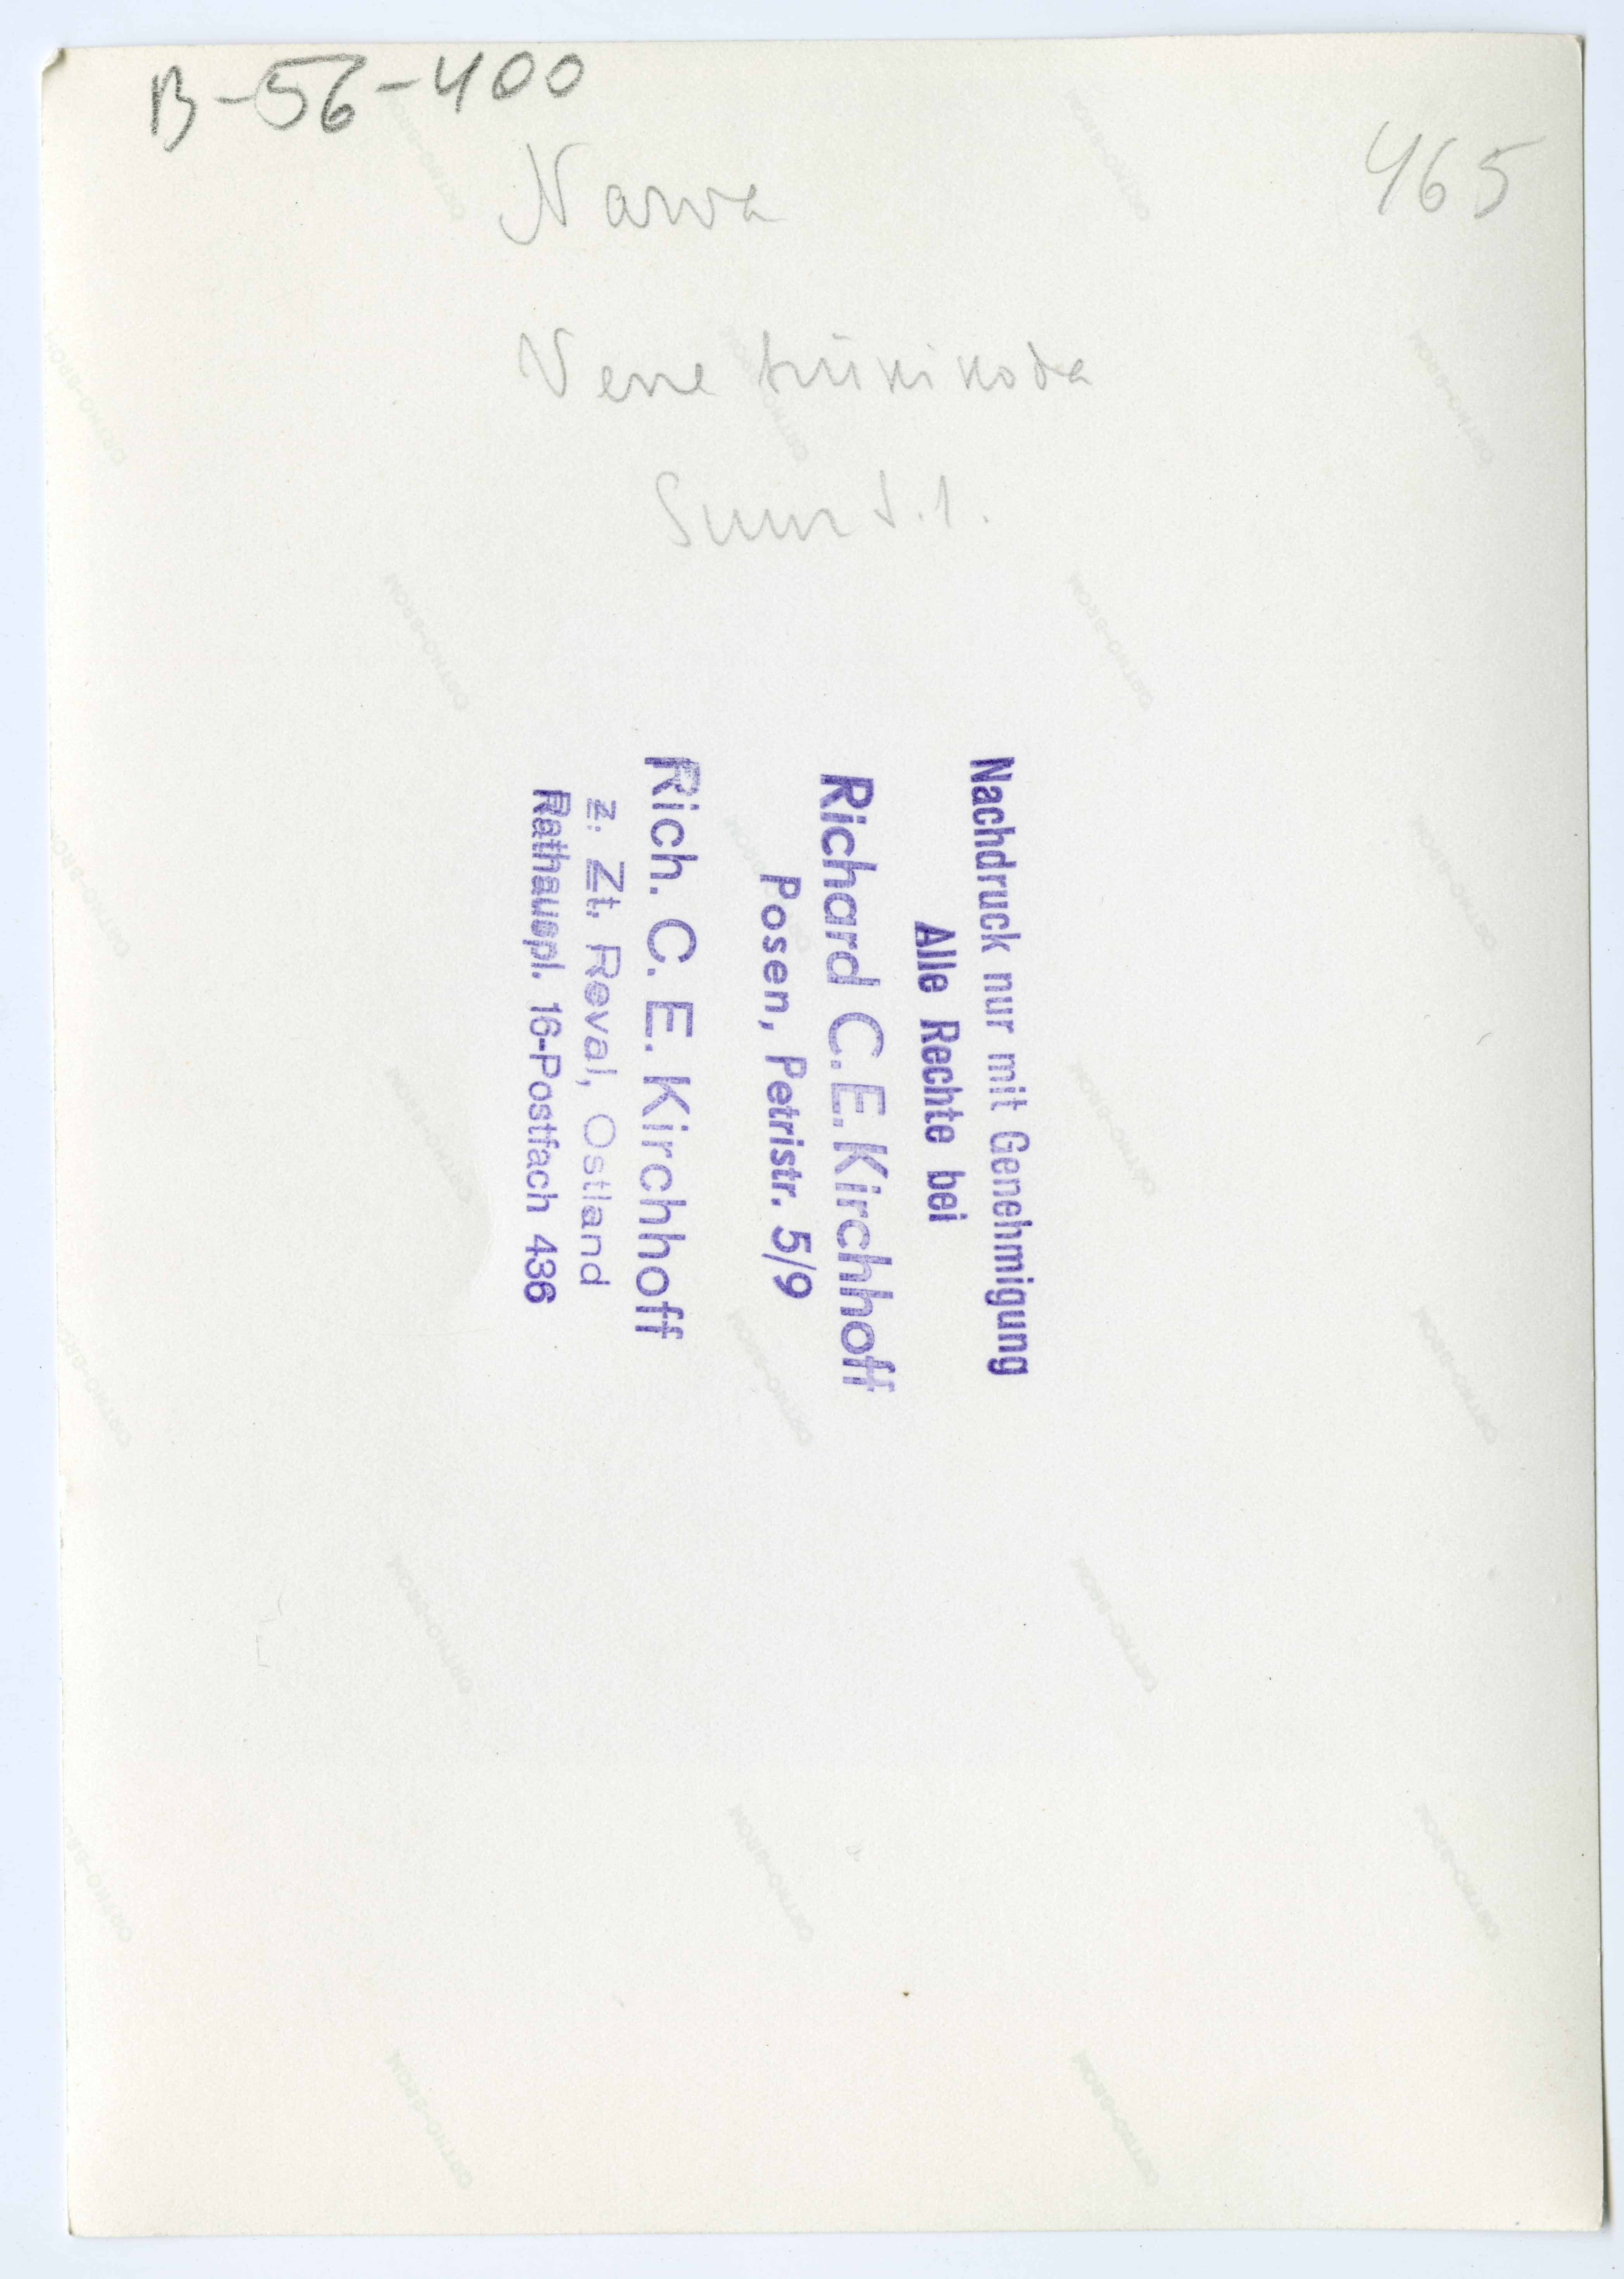 B-56-400
465
Narva
Vene trükikoda
Suur t. 1.
Nachdruck nur mit Genehmigung
Alle Rechte bei
Richard C. E. Kirchhoff
Posen, Petristr. 5/9
Rich. C. E. Kirchhoff
z. Zt. Reval, Ostland
Rathauspl. 16-Postfach 436
ORTHO-BROM